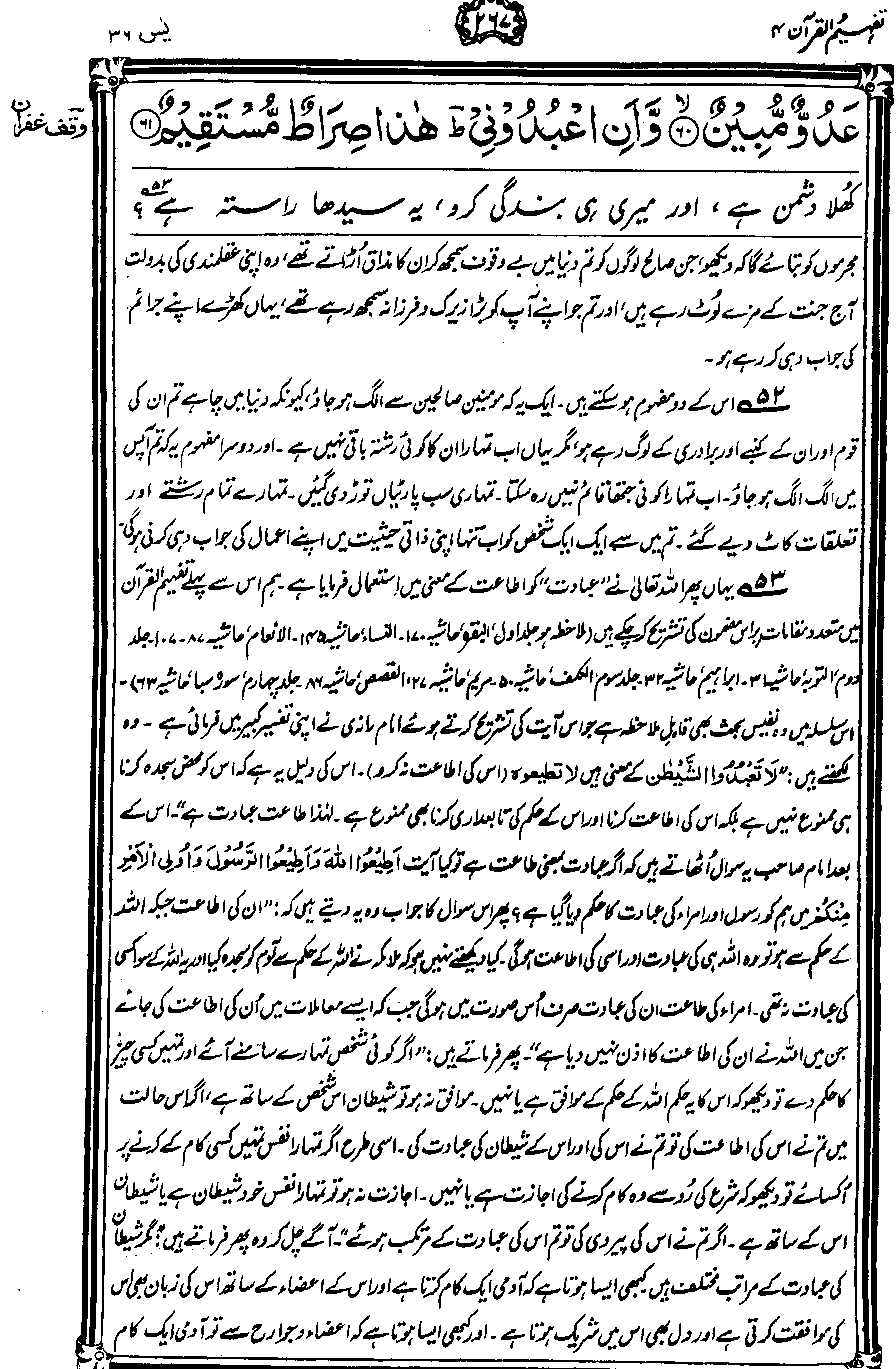 تفہیم القرآن ۴
۲۶۷
یٰس ۳۶
عَدُوٌّ مُّبِيْنٌ ۙ﴿۶۰﴾ وَّاَنِ اعْبُدُوْنِيْ ؔؕ هٰذَا صِرَاطٌ مُّسْتَقِيْمٌ ﴿۶۱﴾
وقف غفران
کھُلا دشمن ہے، اور میری ہی بندگی کرو، یہ سیدھا راستہ ہے؟ ۵۳
مجرموں کو بتائے گا کہ دیکھو، جن صالح لوگوں کو تم دنیا میں بے وقوف سمجھ کر ان کا مذاق اُڑاتے تھے، وہ اپنی عقلمندی کی بدولت
آج جنت کے مزے لُوٹ رہے ہیں، اور تم جو اپنے آپ کو بڑا زیرک و فرزانہ سمجھ رہے تھے، یہاں کھڑے اپنے جرائم
کی جواب دہی کر رہے ہو۔
۵۲ اس کے دو مفہوم ہو سکتے ہیں۔ ایک یہ کہ مومنین صالحین سے الگ ہو جاؤ، کیونکہ دنیا میں چاہے تم ان کی
قوم اور ان کے کنبے اور برادری کے لوگ رہے ہو، مگر یہاں اب تمہارا ان کا کوئی رشتہ باقی نہیں ہے۔ اور دوسرا مفہوم یہ کہ تم آپس
میں الگ الگ ہو جاؤ۔ اب تمہارا کوئی جتھا قائم نہیں رہ سکتا۔ تمہاری سب پارٹیاں توڑ دی گئیں۔ تمہارے تمام رشتے اور
تعلقات کاٹ دیے گئے۔ تم میں سے ایک ایک شخص کو اب تنہا اپنی ذاتی حیثیت میں اپنے اعمال کی جواب دہی کرنی ہوگی۔
۵۳ یہاں پھر اللہ تعالیٰ نے ”عبادت“ کو اطاعت کے معنی میں استعمال فرمایا ہے۔ ہم اس سے پہلے تفہیم القرآن
میں متعدد مقامات پر اس مضمون کی تشریح کر چکے ہیں (ملاحظہ ہو جلد اول، البقرہ، حاشیہ ۱۷۰۔ النساء، حاشیہ ۱۴۵۔ الانعام، حاشیہ ۸۷۔۱۰۷۔ جلد
دوم، التوبہ، حاشیہ ۳۱۔ ابراہیم، حاشیہ ۳۲۔ جلد سوم، الکہف، حاشیہ ۵۰۔ مریم، حاشیہ ۲۷۔ القصص، حاشیہ ۸۶۔ جلد چہارم، سورۂ سبا، حاشیہ ۶۳)۔
اس سلسلہ میں وہ نفیس بحث بھی قابلِ ملاحظہ ہے جو اس آیت کی تشریح کرتے ہوئے امام رازی نے اپنی تفسیر کبیر میں فرمائی ہے۔ وہ
لکھتے ہیں: ”لَا تَعْبُدُوا الشَّيْطٰن کے معنی ہیں لا تطیعوہ (اس کی اطاعت نہ کرو)۔ اس کی دلیل یہ ہے کہ اس کو محض سجدہ کرنا
ہی ممنوع نہیں ہے بلکہ اس کی اطاعت کرنا اور اس کے حکم کی تابعداری کرنا بھی ممنوع ہے۔ لہٰذا طاعت عبادت ہے“۔ اس کے
بعد امام صاحب یہ سوال اُٹھاتے ہیں کہ اگر عبادت بمعنی طاعت ہے تو کیا آیت اَطِيْعُوا اللّٰهَ وَاَطِيْعُوا الرَّسُوْلَ وَاُولِى الْاَمْرِ
مِنْكُمْ میں ہم کو رسول اور امراء کی عبادت کا حکم دیا گیا ہے؟ پھر اس سوال کا جواب وہ یہ دیتے ہیں کہ: ”ان کی اطاعت جبکہ اللہ
کے حکم سے ہو تو وہ اللہ ہی کی عبادت اور اسی کی اطاعت ہوگی۔ کیا دیکھتے نہیں ہو کہ ملائکہ نے اللہ کے حکم سے آدم کو سجدہ کیا اور یہ اللہ کے سوا کسی
کی عبادت نہ تھی۔ امراء کی طاعت ان کی عبادت صرف اُس صورت میں ہوگی جب کہ ایسے معاملات میں اُن کی اطاعت کی جائے
جن میں اللہ نے ان کی اطاعت کا اذن نہیں دیا ہے“۔ پھر فرماتے ہیں: ”اگر کوئی شخص تمہارے سامنے آئے اور تمہیں کسی چیز
کا حکم دے تو دیکھو کہ اس کا یہ حکم اللہ کے حکم کے موافق ہے یا نہیں۔ موافق نہ ہو تو شیطان اس شخص کے ساتھ ہے، اگر اس حالت
میں تم نے اس کی اطاعت کی تو تم نے اس کی اور اس کے شیطان کی عبادت کی۔ اسی طرح اگر تمہارا نفس تمہیں کسی کام کے کرنے پر
اُکسائے تو دیکھو کہ شرع کی رُو سے وہ کام کرنے کی اجازت ہے یا نہیں۔ اجازت نہ ہو تو تمہارا نفس خود شیطان ہے یا شیطان
اس کے ساتھ ہے۔ اگر تم نے اس کی پیروی کی تو تم اس کی عبادت کے مرتکب ہوئے“۔ آگے چل کر وہ پھر فرماتے ہیں: ”مگر شیطان
کی عبادت کے مراتب مختلف ہیں کبھی ایسا ہوتا ہے کہ آدمی ایک کام کرتا ہے اور اس کے اعضاء کے ساتھ اس کی زبان بھی اس
کی موافقت کرتی ہے اور دل بھی اس میں شریک ہوتا ہے۔ اور کبھی ایسا ہوتا ہے کہ اعضاء و جوارح سے تو آدمی ایک کام